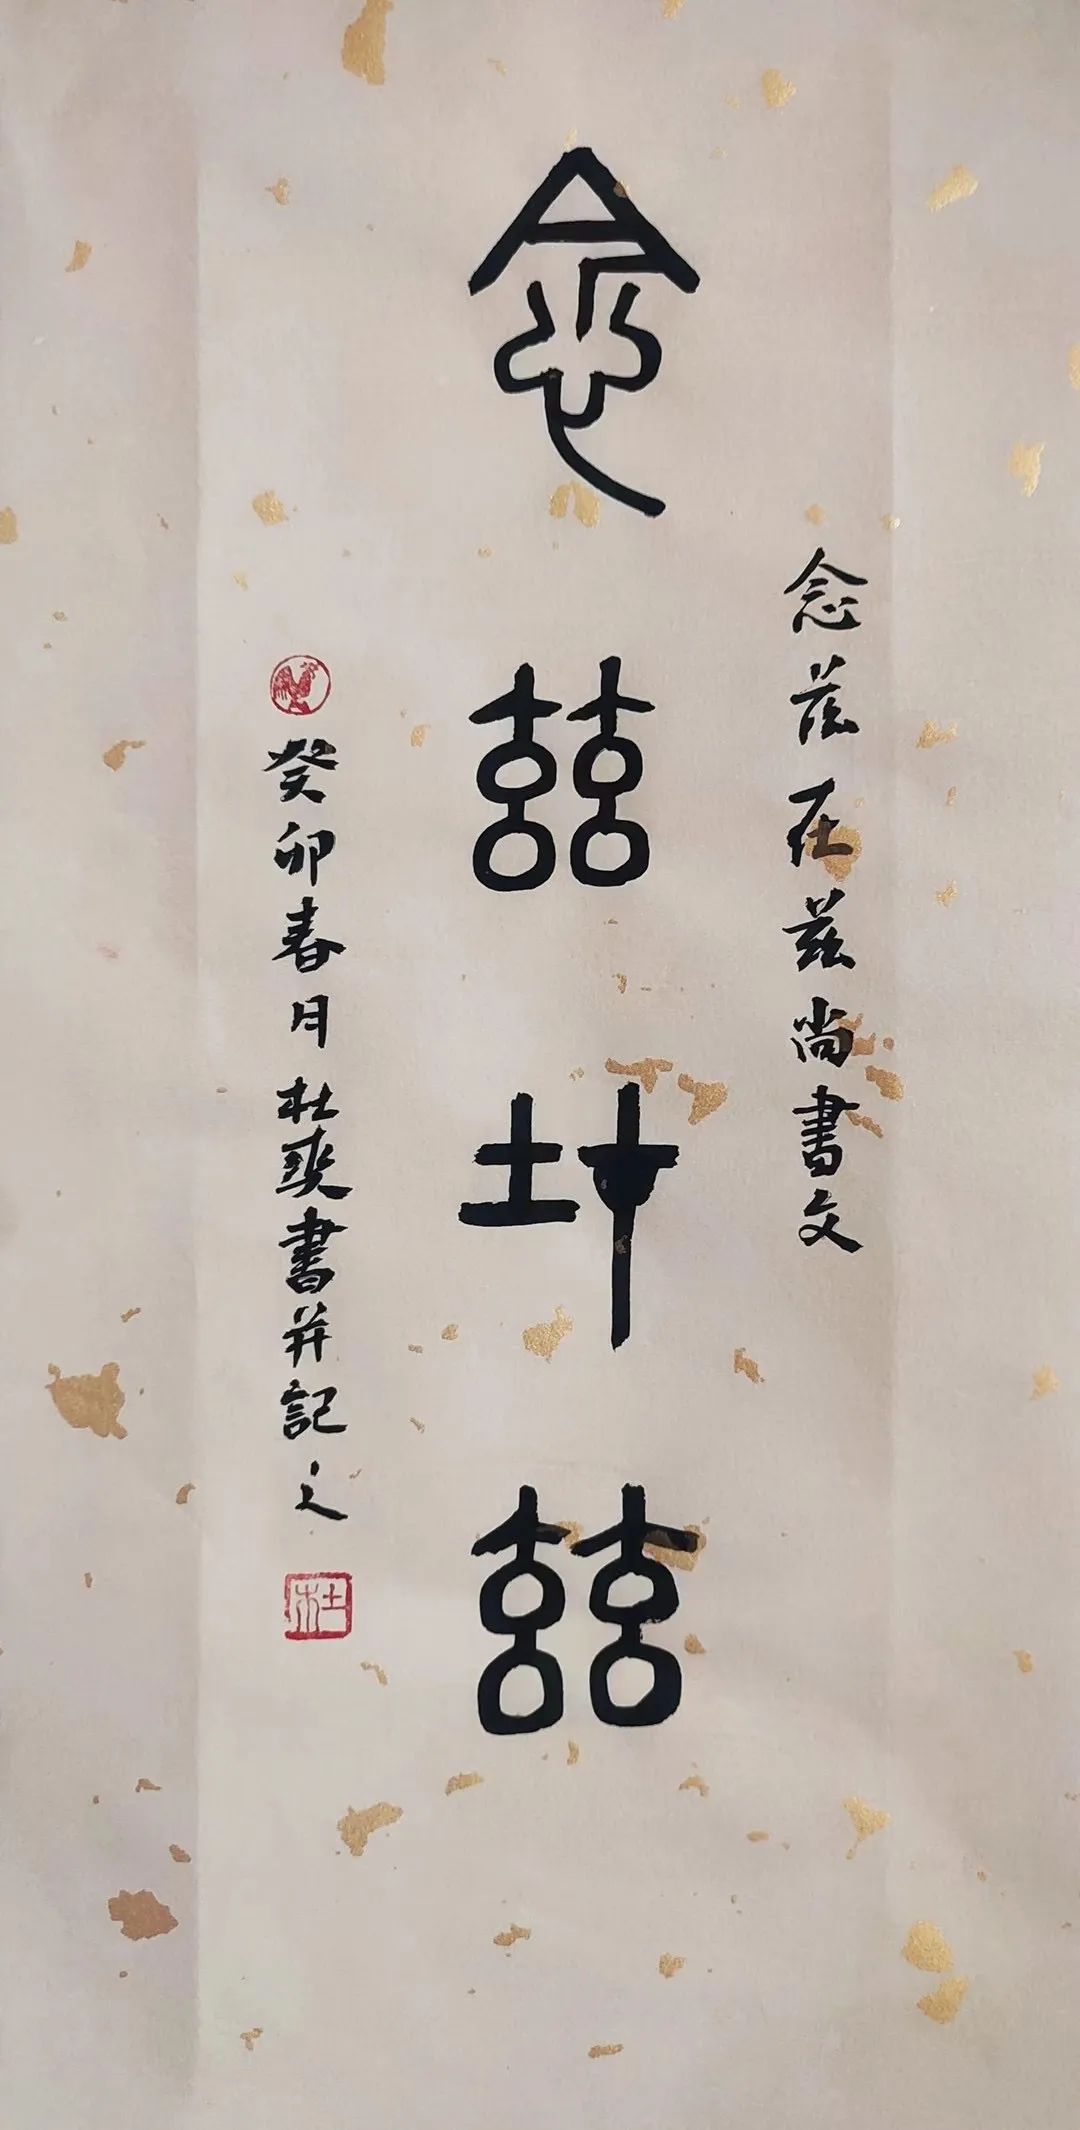 念茲在茲尚書文
念茲在茲
癸卯春月杜書并記之
杜